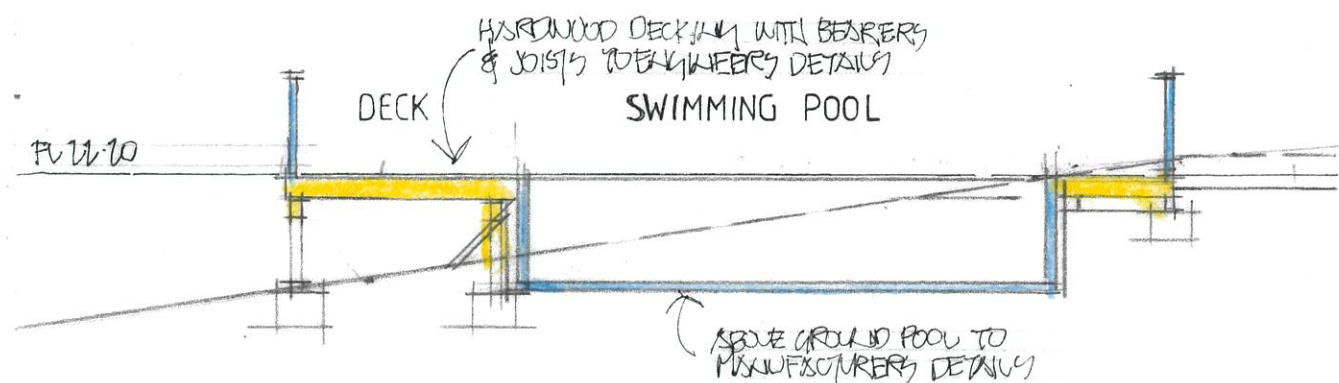 HARDWOOD DECKING WITH BEARERS
& JOISTS TO ENGINEERS DETAILS
DECK
SWIMMING POOL
FL 22.20
ABOVE GROUND POOL TO
MANUFACTURERS DETAILS